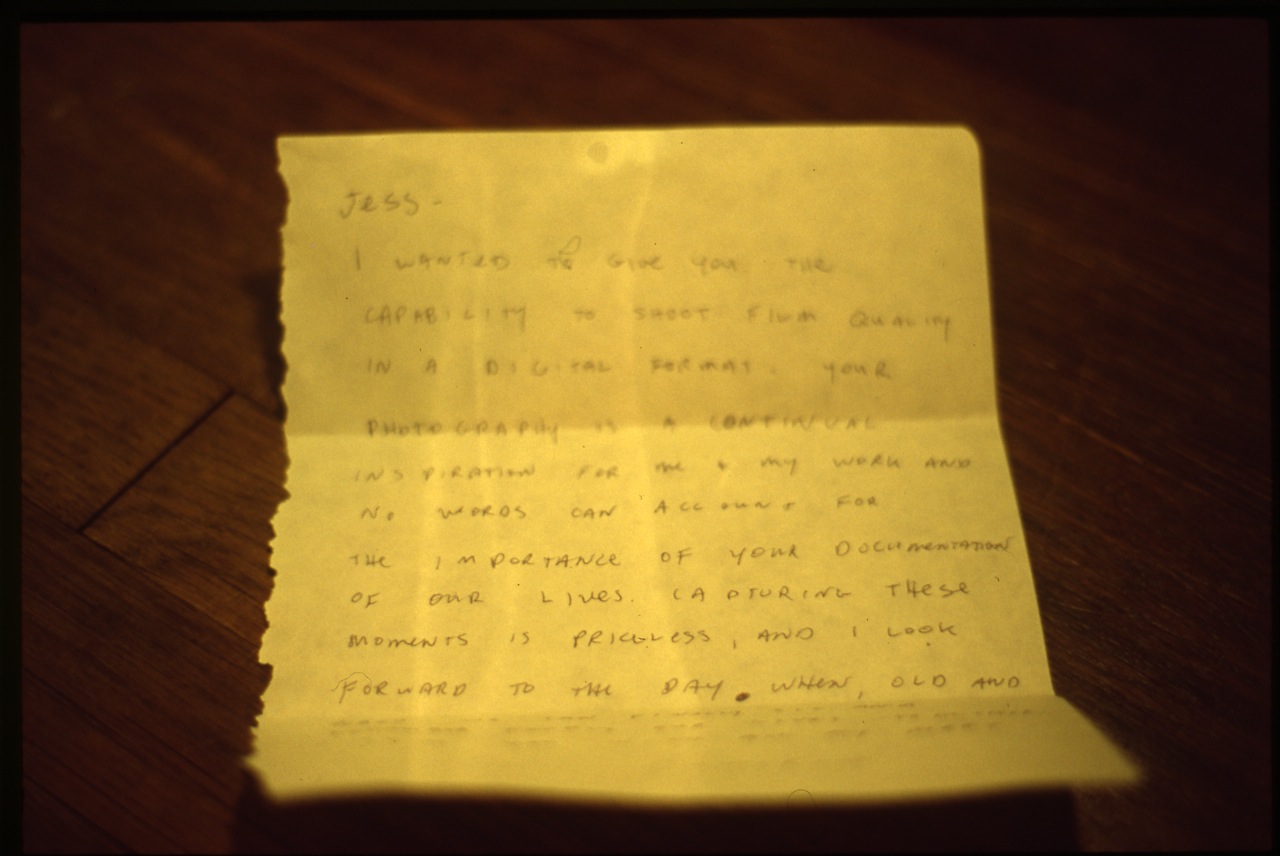 Jess -
I WANTED TO GIVE YOU THE
CAPABILITY TO SHOOT FILM QUALITY
IN A DIGITAL FORMAT. YOUR
PHOTOGRAPHY IS A CONTINUAL
INSPIRATION FOR ME & MY WORK AND
NO WORDS CAN ACCOUNT FOR
THE IMPORTANCE OF YOUR DOCUMENTATION
OF OUR LIVES. CAPTURING THESE
MOMENTS IS PRICELESS, AND I LOOK
FORWARD TO THE DAY WHEN, OLD AND